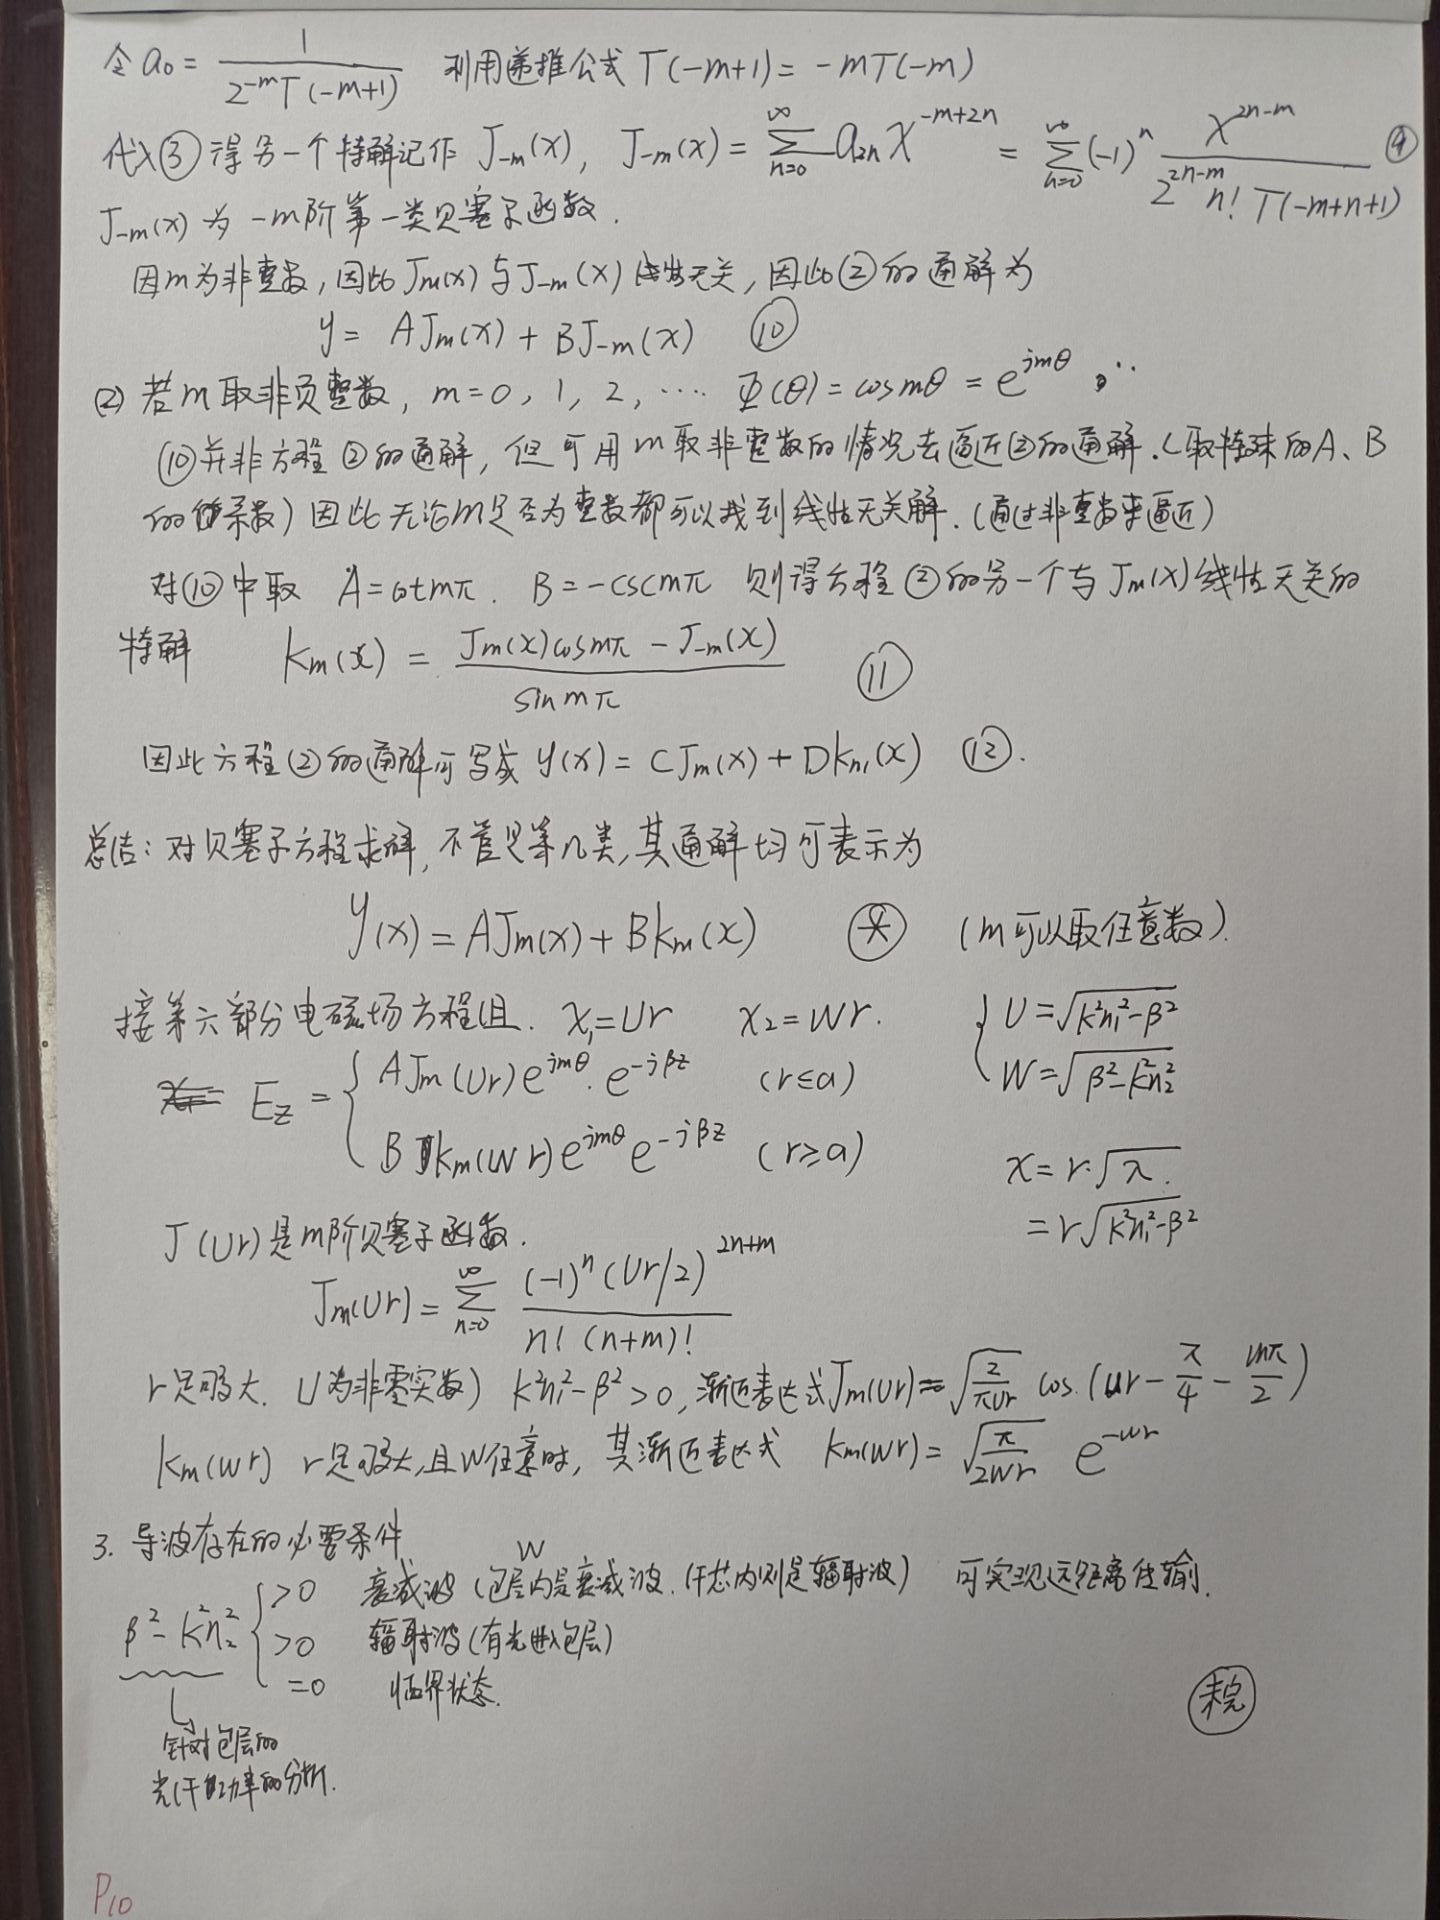 令 a₀ = 1 / (2^{-m} Γ(-m+1)) 利用递推公式 Γ(-m+1) = -mΓ(-m)
代入③得另一个特解记作 J₋ₘ(x), J₋ₘ(x) = Σ_{n=0}^{∞} a₂ₙ x^{-m+2n} = Σ_{n=0}^{∞} (-1)^n x^{2n-m} / (2^{2n-m} n! Γ(-m+n+1)) ⑨
J₋ₘ(x) 为 -m阶第一类贝塞尔函数.
因m为非整数, 因此 Jₘ(x) 与 J₋ₘ(x) 线性无关, 因此②的通解为
y = AJₘ(x) + BJ₋ₘ(x) ⑩
(2) 若m取非负整数, m=0, 1, 2, … Φ(θ) = cos mθ = e^{jmθ}
⑩并非方程②的通解, 但可用m取非整数的情况去逼近②的通解. (取特殊的A、B
的系数) 因此无论m是否为整数都可以找到线性无关解. (通过非整数来逼近)
对⑩中取 A = cot mπ. B = -csc mπ 则得方程②的另一个与 Jₘ(x) 线性无关的
特解 Kₘ(x) = (Jₘ(x)cos mπ - J₋ₘ(x)) / sin mπ ⑪
因此方程②的通解可写成 y(x) = CJₘ(x) + DKₘ(x) ⑫.
总结: 对贝塞尔方程求解, 不管是第几类, 其通解均可表示为
y(x) = AJₘ(x) + BKₘ(x) ⊛ (m可以取任意数).
接第六部分电磁场方程组. x₁ = Ur x₂ = Wr. { U = √(k²n₁² - β²)
W = √(β² - k²n₂²)
E_z = { AJₘ(Ur)e^{jmθ}·e^{-jβz} (r≤a)
BKₘ(Wr)e^{jmθ}e^{-jβz} (r≥a)
x = r·√λ.
= r√(k²n₁² - β²)
J(Ur)是m阶贝塞尔函数.
Jₘ(Ur) = Σ_{n=0}^{∞} (-1)^n (Ur/2)^{2n+m} / (n! (n+m)!)
r足够大. U为非零实数) k²n₁² - β² > 0, 渐近表达式 Jₘ(Ur) ≈ √(2/(πUr)) cos.(Ur - π/4 - mπ/2)
Kₘ(Wr) r足够大, 且W任意时, 其渐近表达式 Kₘ(Wr) = √(π/(2Wr)) e^{-Wr}
3. 导波存在的必要条件
W
β² - k²n₂² { >0 衰减波 (包层内是衰减波. 纤芯内则是辐射波) 可实现远距离传输.
>0 辐射波 (有光进入包层)
=0 临界状态.
针对包层的
光纤功率的分析.
未完
P₁₀